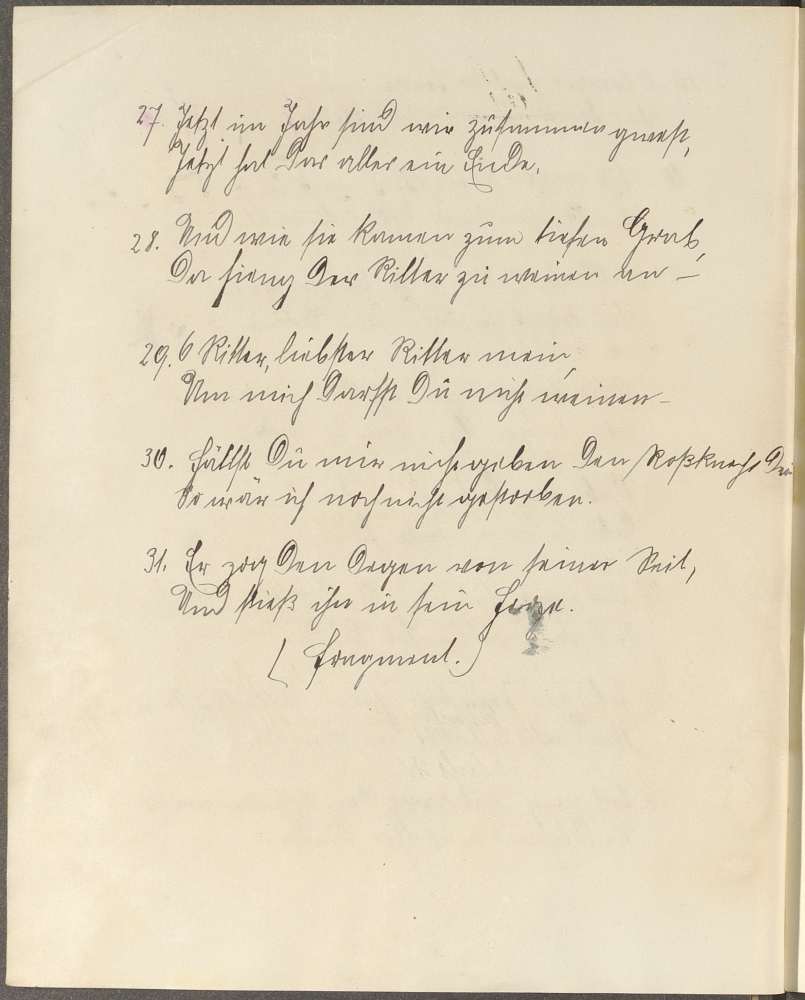 27. Jetzt im Jahr sind wir zusammen gwest,
Jetzt hat das alles ein Ende.
28. Und wie sie kamen zum tiefen Grab,
Da fieng der Ritter zu weinen an –
29. O Ritter, liebster Ritter mein,
Um mich darfst Du nicht weinen –
30. Hättst Du mir nicht geben den Roßknecht Dein
So wär ich noch nicht gestorben.
31. Er zog den Degen von seiner Seit,
Und stieß ihn in sein Herze.
(Fragment.)